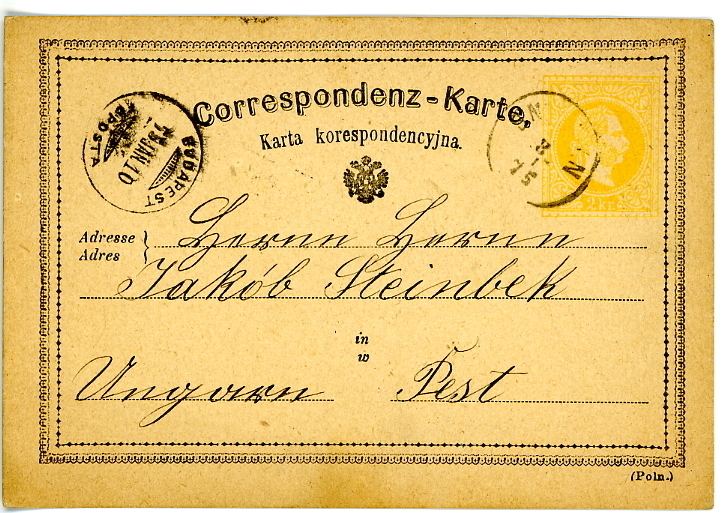 Correspondenz-Karte.
Karta korespondencyjna.
BUDAPEST
Adresse
Adres
Herrn Herrn
Jakób Steinbek
in
w
Ungarn Pest
(Poln.)